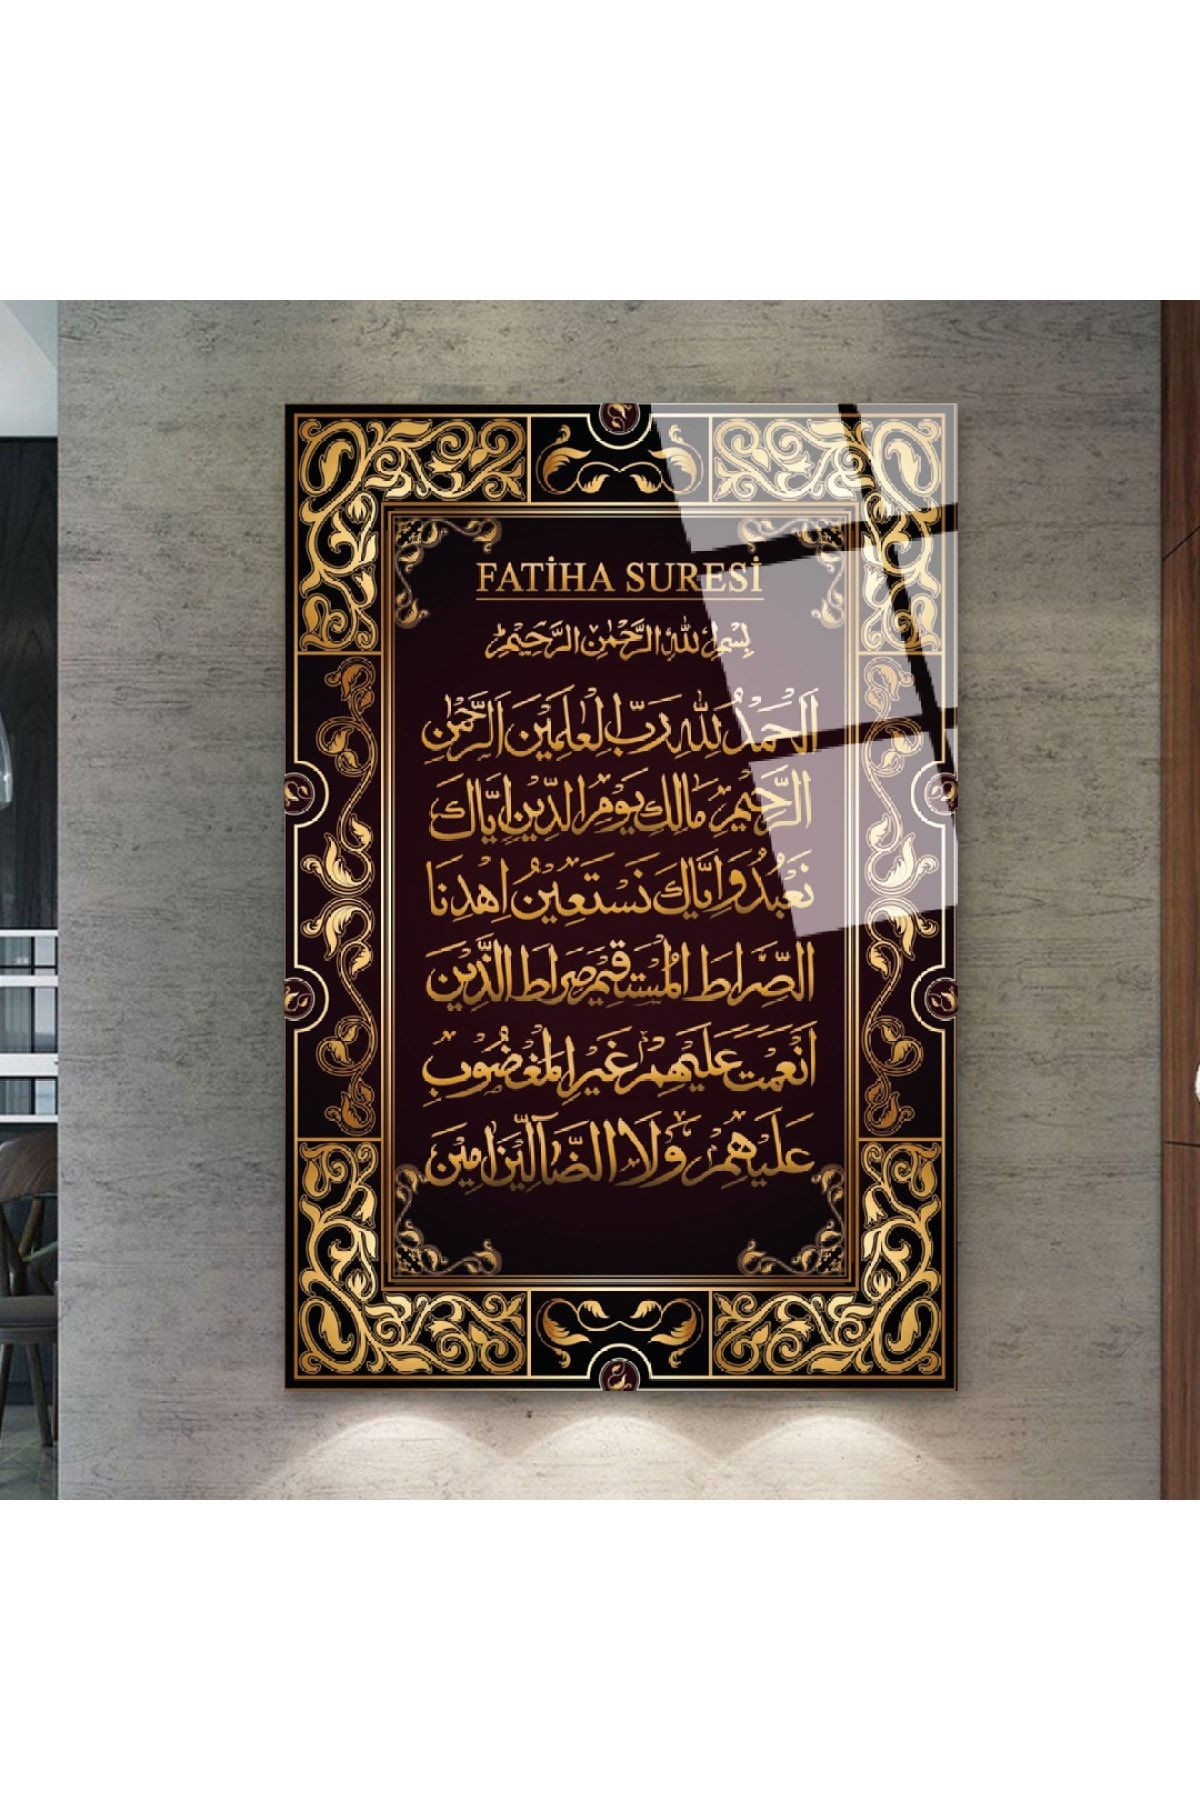 FATİHA SURESİ
بِسْمِ اللهِ الرَّحْمٰنِ الرَّحِيمِ
اَلْحَمْدُ لِلهِ رَبِّ الْعٰلَمِينَ اَلرَّحْمٰنِ
الرَّحِيمِ مَالِكِ يَوْمِ الدِّينِ اِيَّاكَ
نَعْبُدُ وَاِيَّاكَ نَسْتَعِينُ اِهْدِنَا
الصِّرَاطَ الْمُسْتَقِيمَ صِرَاطَ الَّذِينَ
اَنْعَمْتَ عَلَيْهِمْ غَيْرِ الْمَغْضُوبِ
عَلَيْهِمْ وَلَا الضَّالِّينَ اٰمِينَ